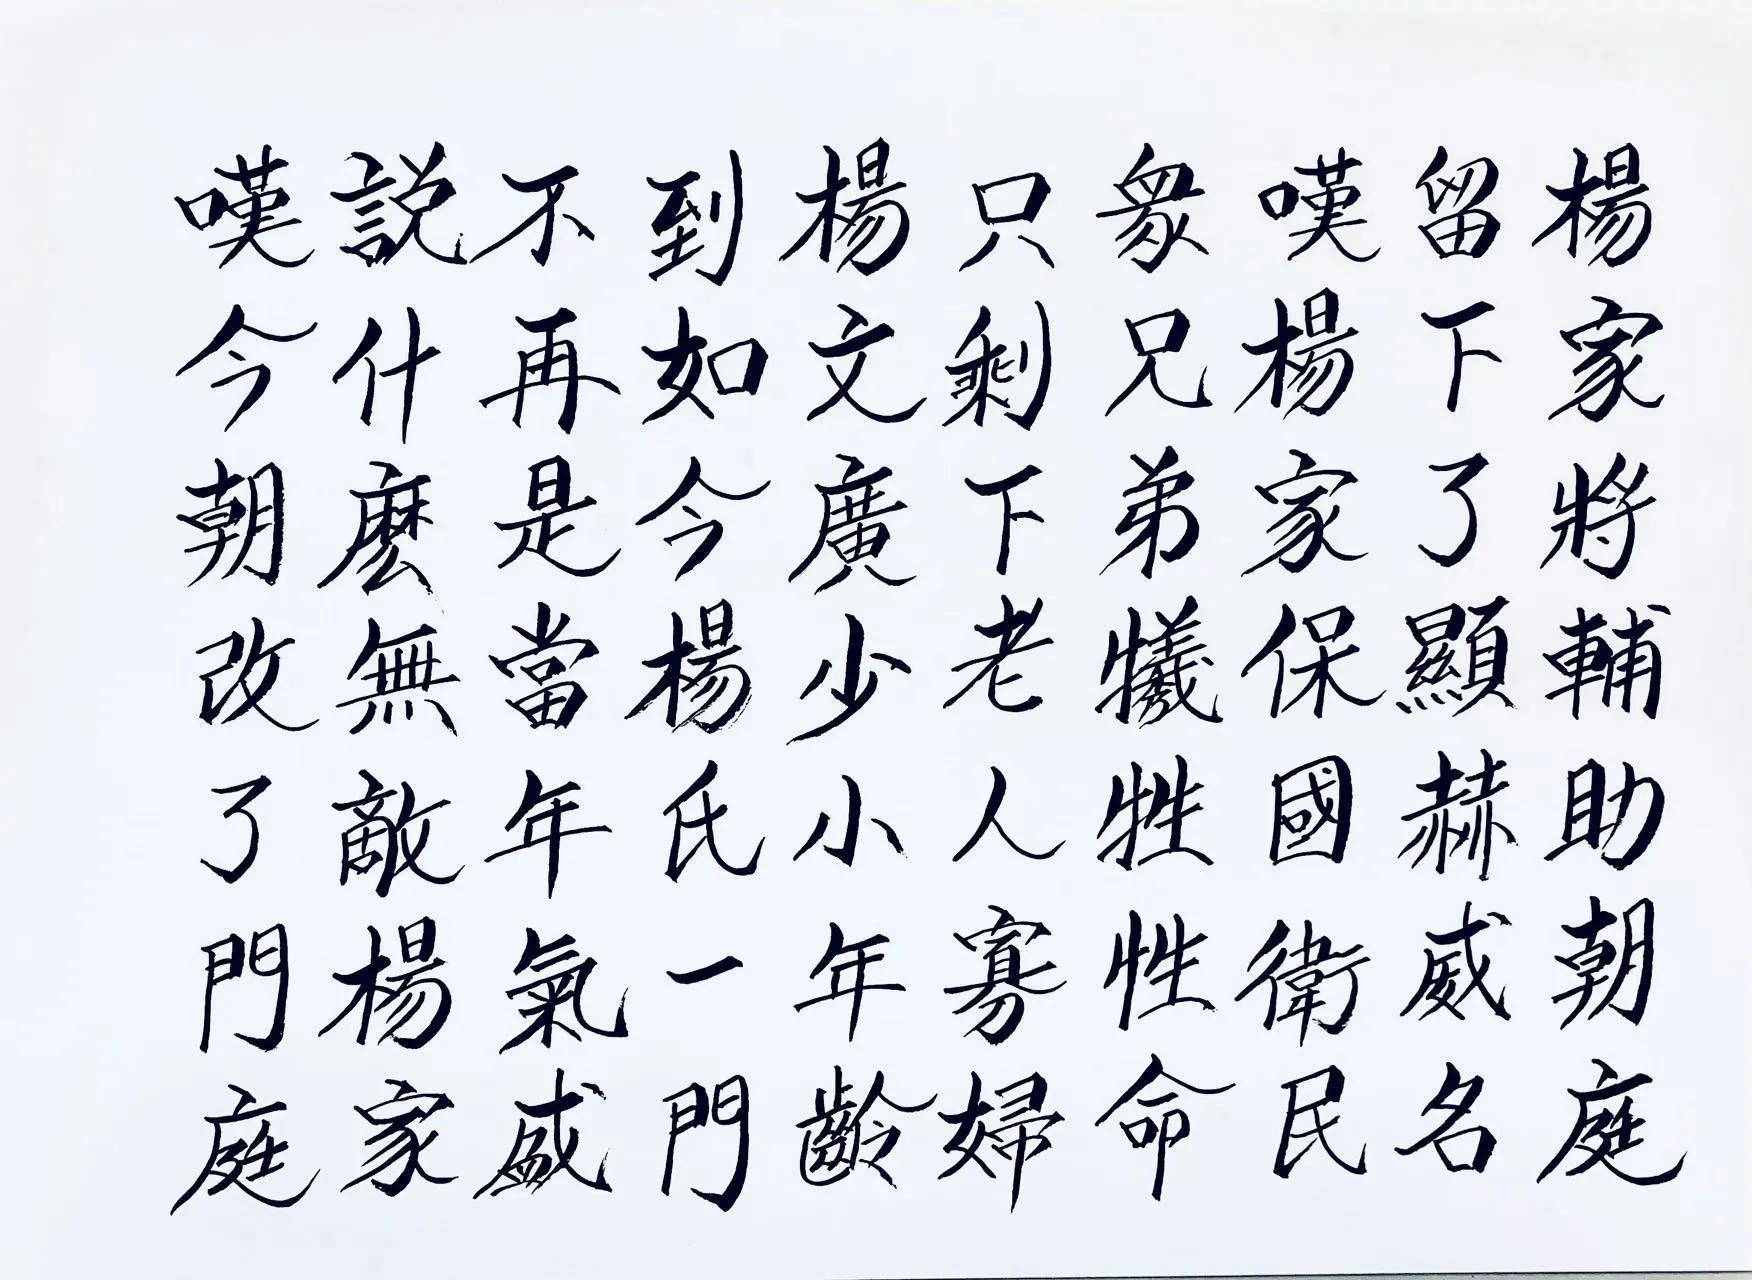 楊家將輔助朝庭
留下了顯赫威名
嘆楊家保國衛民
眾兄弟犧牲性命
只剩下老人寡婦
楊文廣少小年齡
到如今楊氏一門
不再是當年氣盛
説什麼無敵楊家
嘆今朝改了門庭